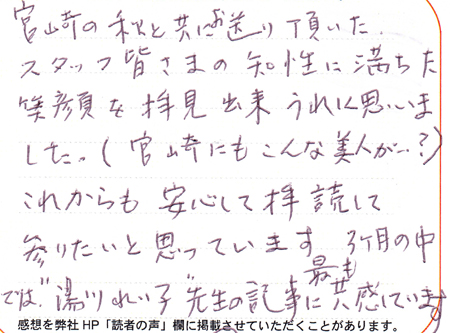 宮崎の秋と共にお送り頂いた
スタッフ皆さまの知性に満ちた
笑顔を拝見出来うれしく思いま
した。(宮崎にもこんな美人が…?)
これからも安心して拝読して
参りたいと思っています 3ヶ月の中
では"湯川れい子"先生の記事に最も共感しています
感想を弊社HP「読者の声」欄に掲載させていただくことがあります。